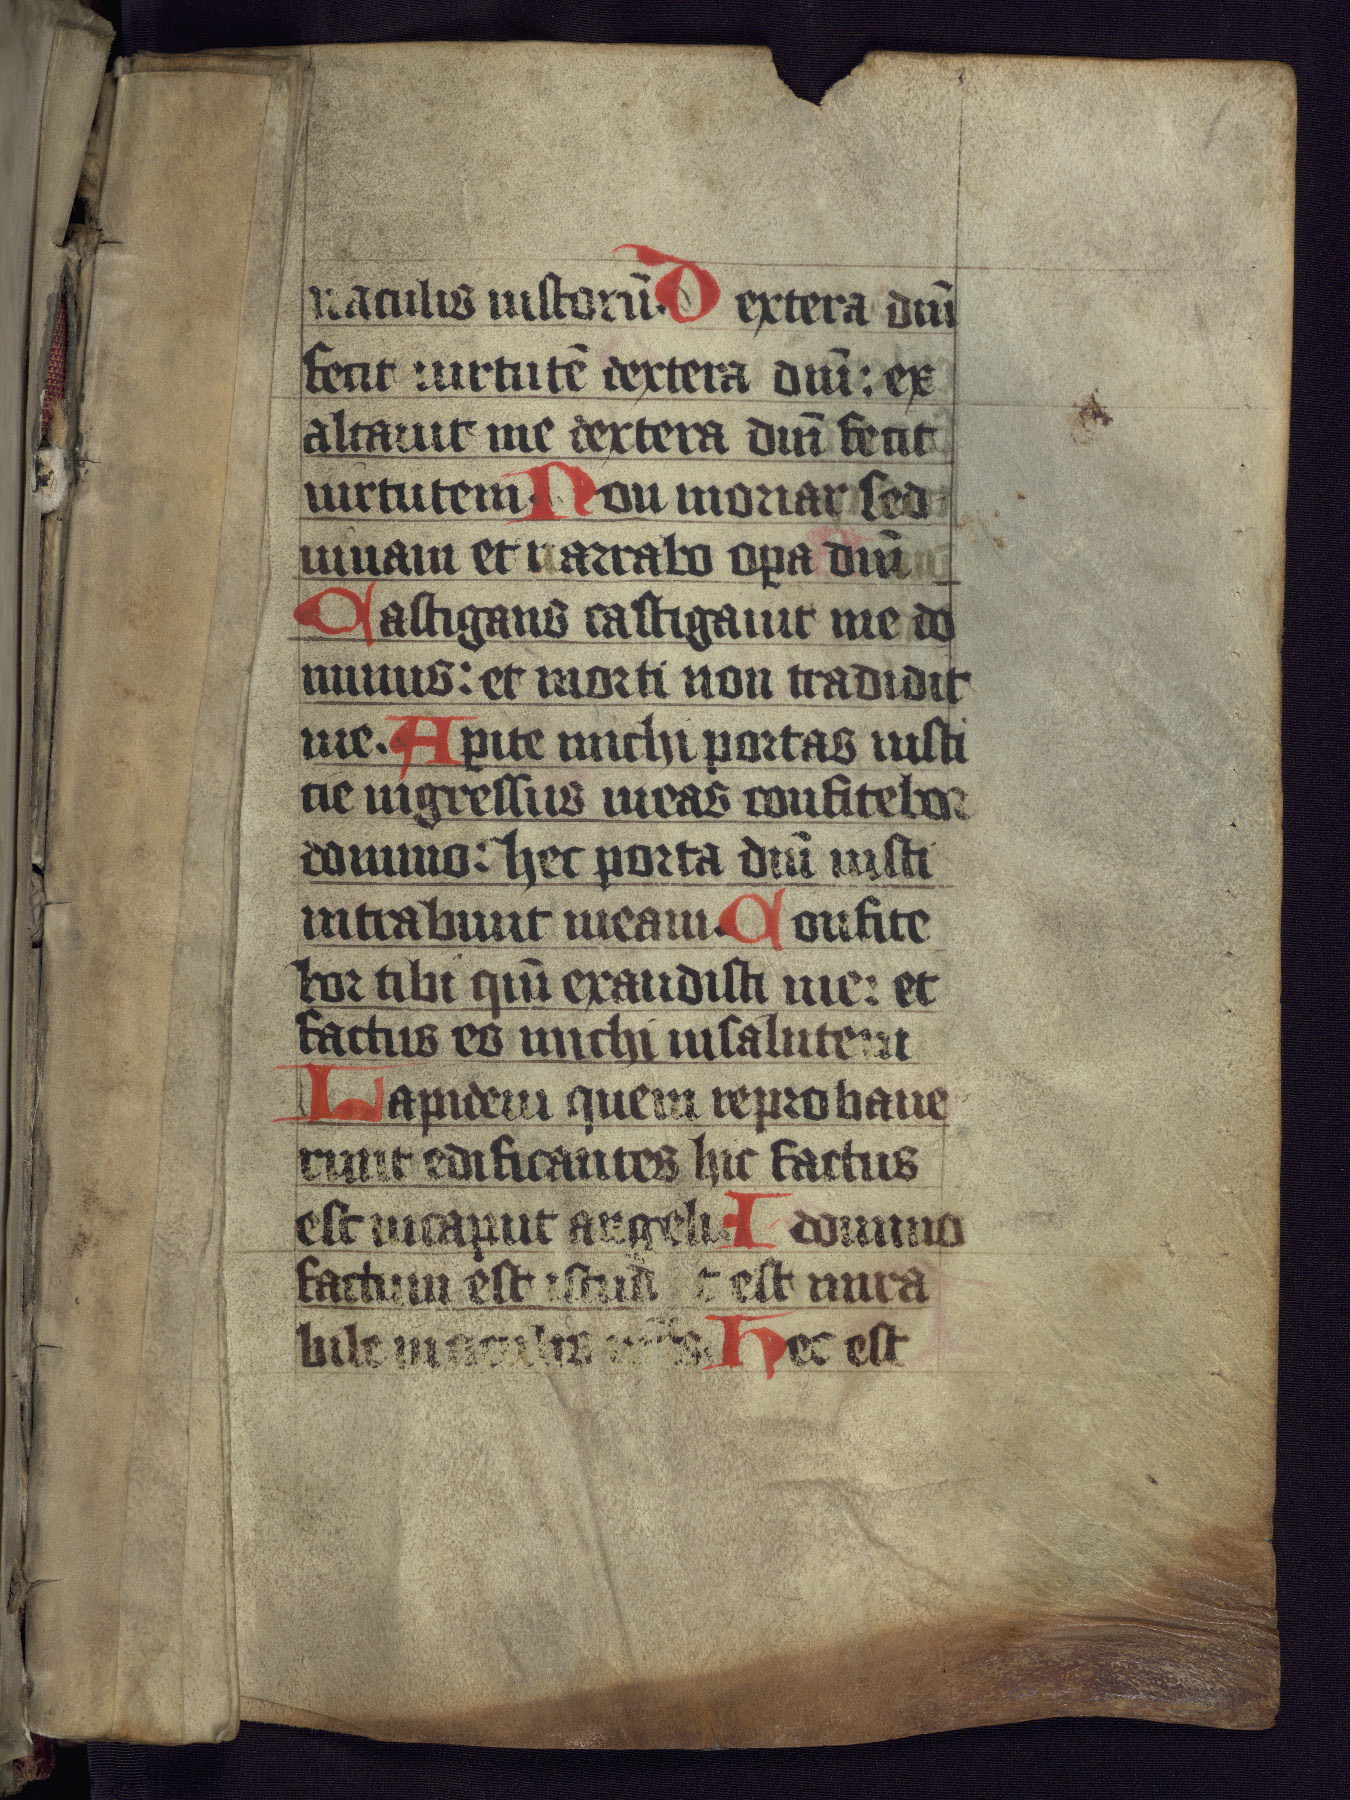 naculis iustorū. Dextera dn̄i
fecit uirtutē dextera dn̄i: ex
altauit me dextera dn̄i fecit
uirtutem. Non moriar sed
uiuam et narrabo opa dn̄i
Castigans castigauit me do
minus: et morti non tradidit
me. Apite michi portas iusti
cie ingressus ineas confitebor
domino: hec porta dn̄i iusti
intrabunt ineam. Confite
bor tibi qm̄ exaudisti me: et
factus es michi insalutem
Lapidem quem reprobaue
runt edificantes hic factus
est incaput angeli. A domino
factum est istud et est mira
bile inoculis nr̄is. Hec est